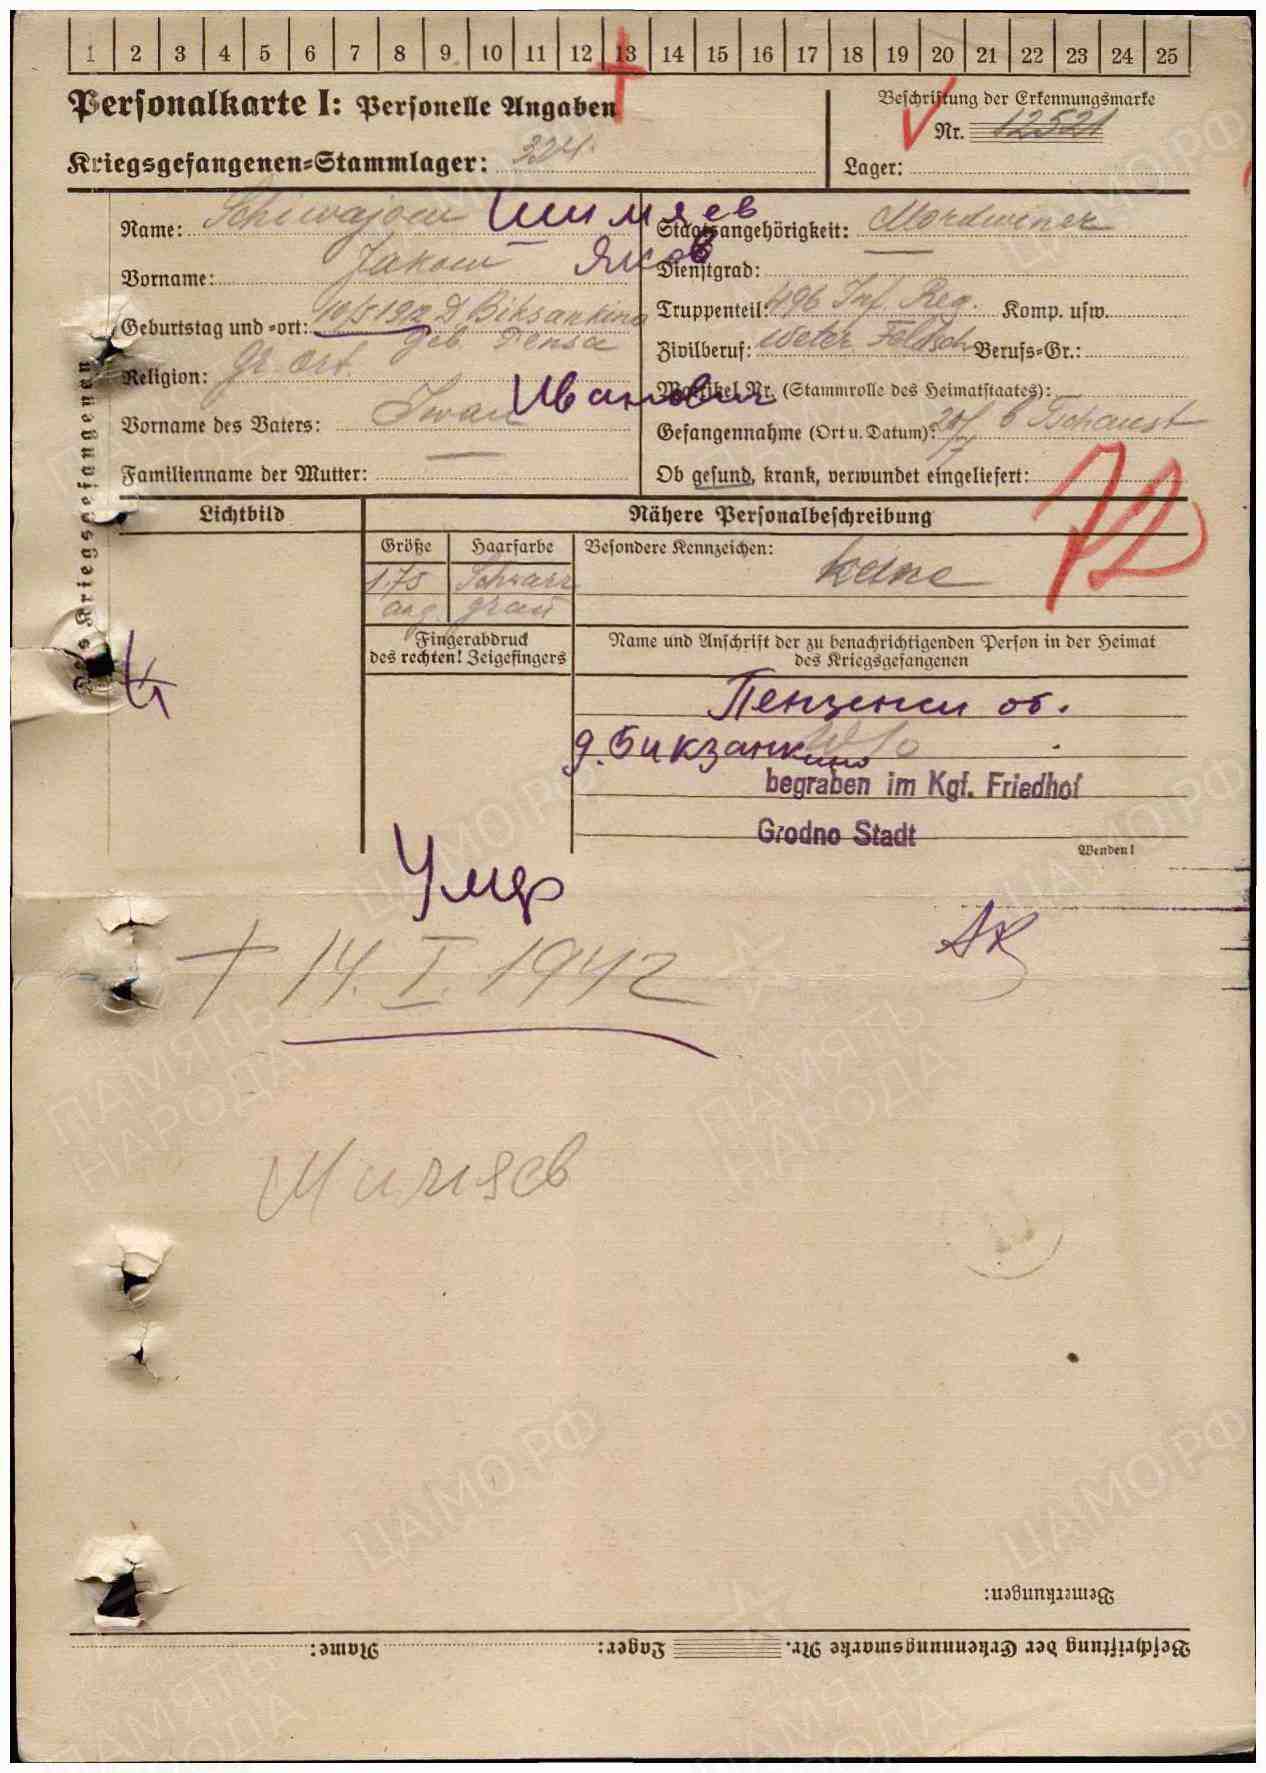 1 2 3 4 5 6 7 8 9 10 11 12 13 14 15 16 17 18 19 20 21 22 23 24 25
Personalkarte I: Personelle Angaben
Kriegsgefangenen-Stammlager: 324
Beschriftung der Erkennungsmarke
Nr. 12521
Lager:
Des Kriegsgefangenen
Name: Schiwajow Шимяев
Vorname: Jakow Яков
Geburtstag und -ort: D Biksankino
Geb. Pensa
Religion: gr. ort
Vorname des Vaters: Iwan Иванович
Familienname der Mutter:
Staatsangehörigkeit: Mordwiner
Dienstgrad:
Truppenteil: 496 Inf. Reg. Komp. usw.
Zivilberuf: Weter Feldsch Berufs-Gr.:
Matrikel Nr. (Stammrolle des Heimatstaates):
Gefangennahme (Ort u. Datum):
Ob gesund, krank, verwundet eingeliefert:
Lichtbild
Nähere Personalbeschreibung
Größe Haarfarbe Besondere Kennzeichen:
1.75 Schwarz keine
aug grau
Fingerabdruck
des rechten! Zeigefingers
Name und Anschrift der zu benachrichtigenden Person in der Heimat
des Kriegsgefangenen
Пензенск об.
д. Бикзанкино
begraben im Kgf. Friedhof
Grodno Stadt
Wenden!
Умер
† 14. I. 1942
Bemerkungen:
Beschriftung der Erkennungsmarke Nr. Lager: Name:
ЦАМО.РФ
ПАМЯТЬ
НАРОДА